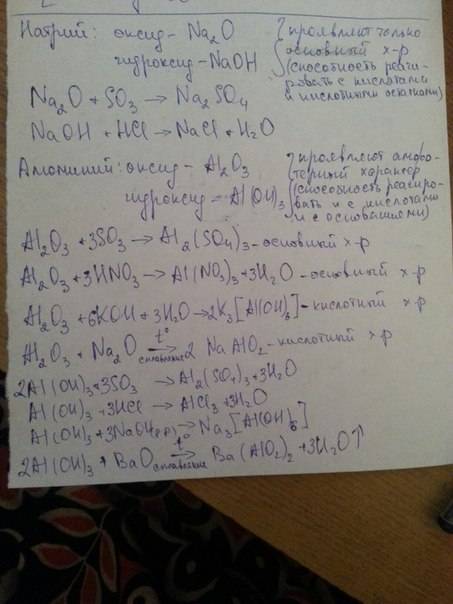 Натрий: оксид - Na₂O } проявляют только
гидроксид - NaOH основный х-р
(способность реаги-
ровать с кислотами
и кислотными остатками)
Na₂O + SO₃ → Na₂SO₄
NaOH + HCl → NaCl + H₂O
Алюминий: оксид - Al₂O₃ } проявляют амфо-
терный характер
гидроксид - Al(OH)₃ (способность реагиро-
вать и с кислотами
и с основаниями)
Al₂O₃ + 3SO₃ → Al₂(SO₄)₃ - основный х-р
Al₂O₃ + 3HNO₃ → Al(NO₃)₃ + 3H₂O - основный х-р
Al₂O₃ + 6KOH + 3H₂O → 2K₃[Al(OH)₆] - кислотный х-р
Al₂O₃ + Na₂O t° сплавление → 2 NaAlO₂ - кислотный х-р
2Al(OH)₃ + 3SO₃ → Al₂(SO₄)₃ + 3H₂O
Al(OH)₃ + 3HCl → AlCl₃ + 3H₂O
Al(OH)₃ + 3NaOH(р-р) → Na₃[Al(OH)₆]
2Al(OH)₃ + BaO t° сплавление → Ba(AlO₂)₂ + 3H₂O↑